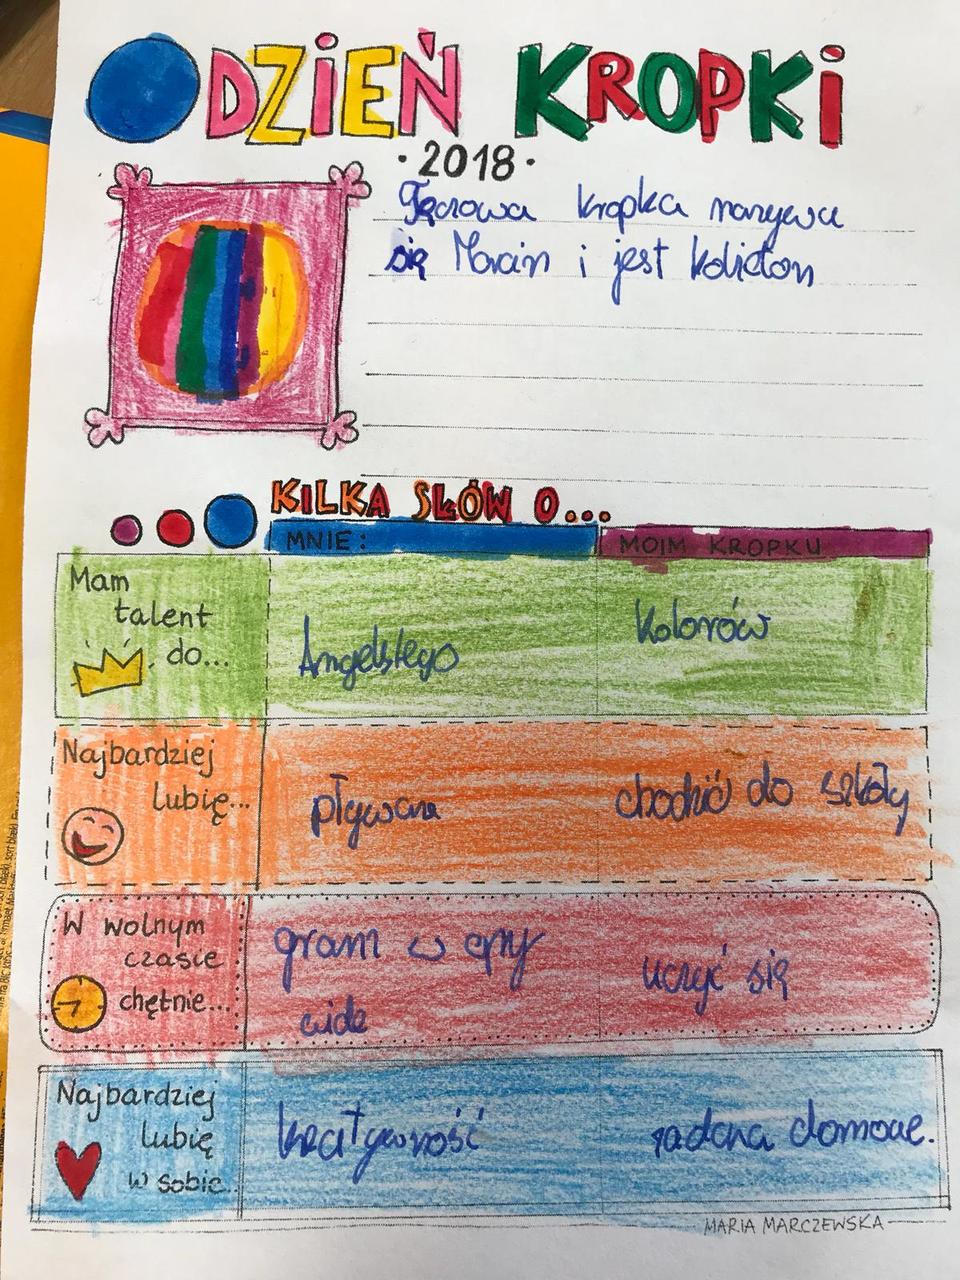 DZIEŃ KROPKI
• 2018 •
Tęczowa kropka nazywa
się Marcin i jest kobieton
KILKA SŁÓW O...
MNIE:
MOIM KROPKU
Mam
talent
do...
Angelskego
Kolorów
Najbardziej
lubię...
pływane
chodzić do szkoły
W wolnym
czasie
chętnie...
gram w gry
wide
uczyć się
Najbardziej
lubię
w sobie..
kreatywność
zadana domowe.
MARIA MARCZEWSKA